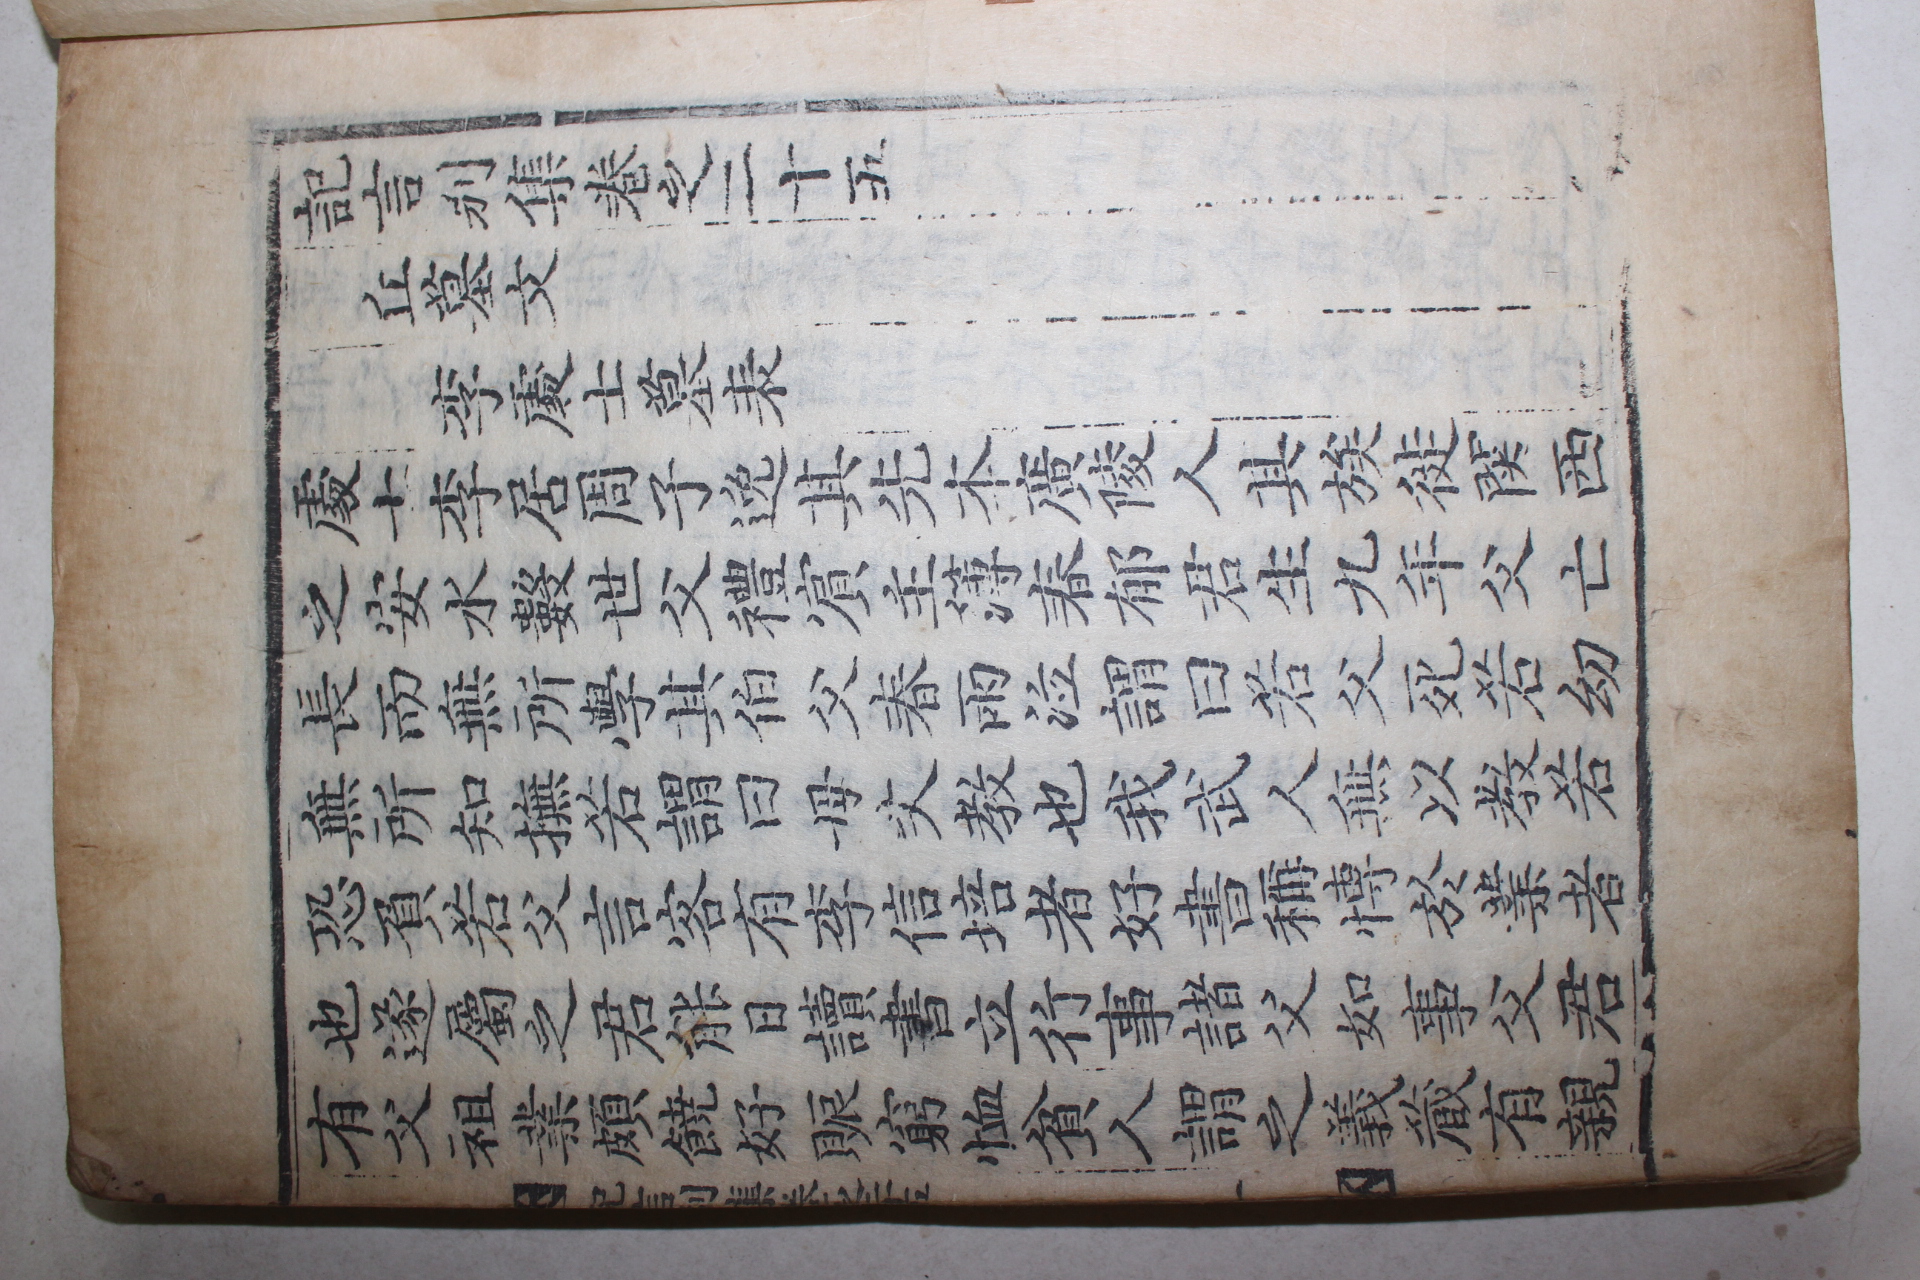 記言別集卷之二十五
丘墓文
李處士墓表
處士李居周子逸其先本廣陵人其族徙關西
之安水世父禮賓主簿春郁君生九年父亡
長而無所學其伯父春雨泣謂曰若父死若幼
無所知撫若謂曰毋失教也我武人無以教若
恐負若父言客有李信培者好書稱博於業者
也遂屬之君能日讀書立行事諸父如事父君
有父祖業頗饒好賑窮恤貧人謂之義藏有親
記言別集卷之二十五